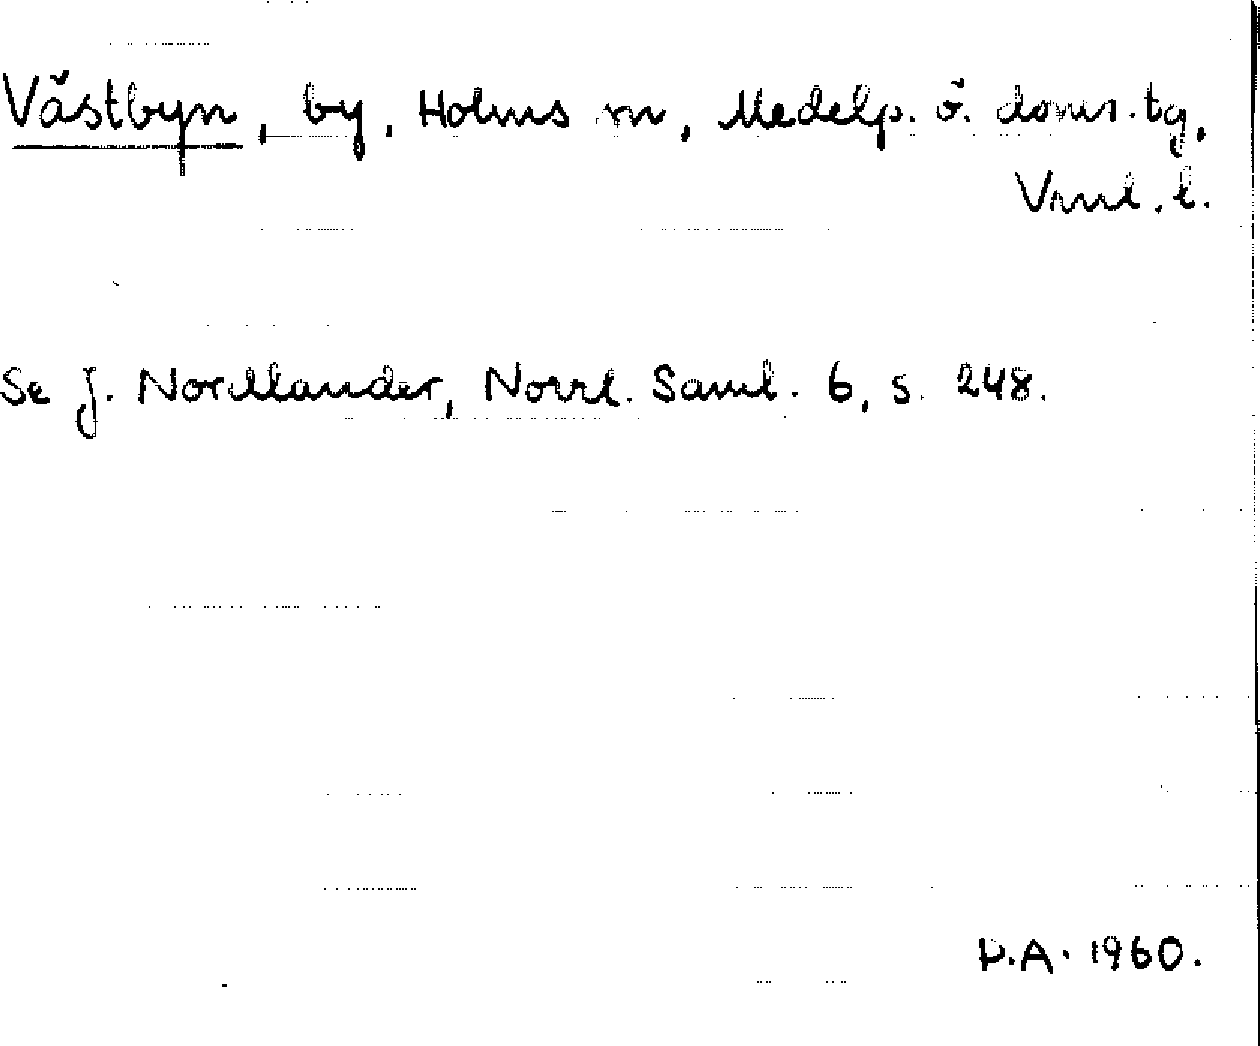 Västbyn, by, Holms sn, Medelp. ö. doms. tg,
Vrnl. l.
Se J. Nordlander, Norrl. Saml. 6, s. 248.
D.A. 1960.